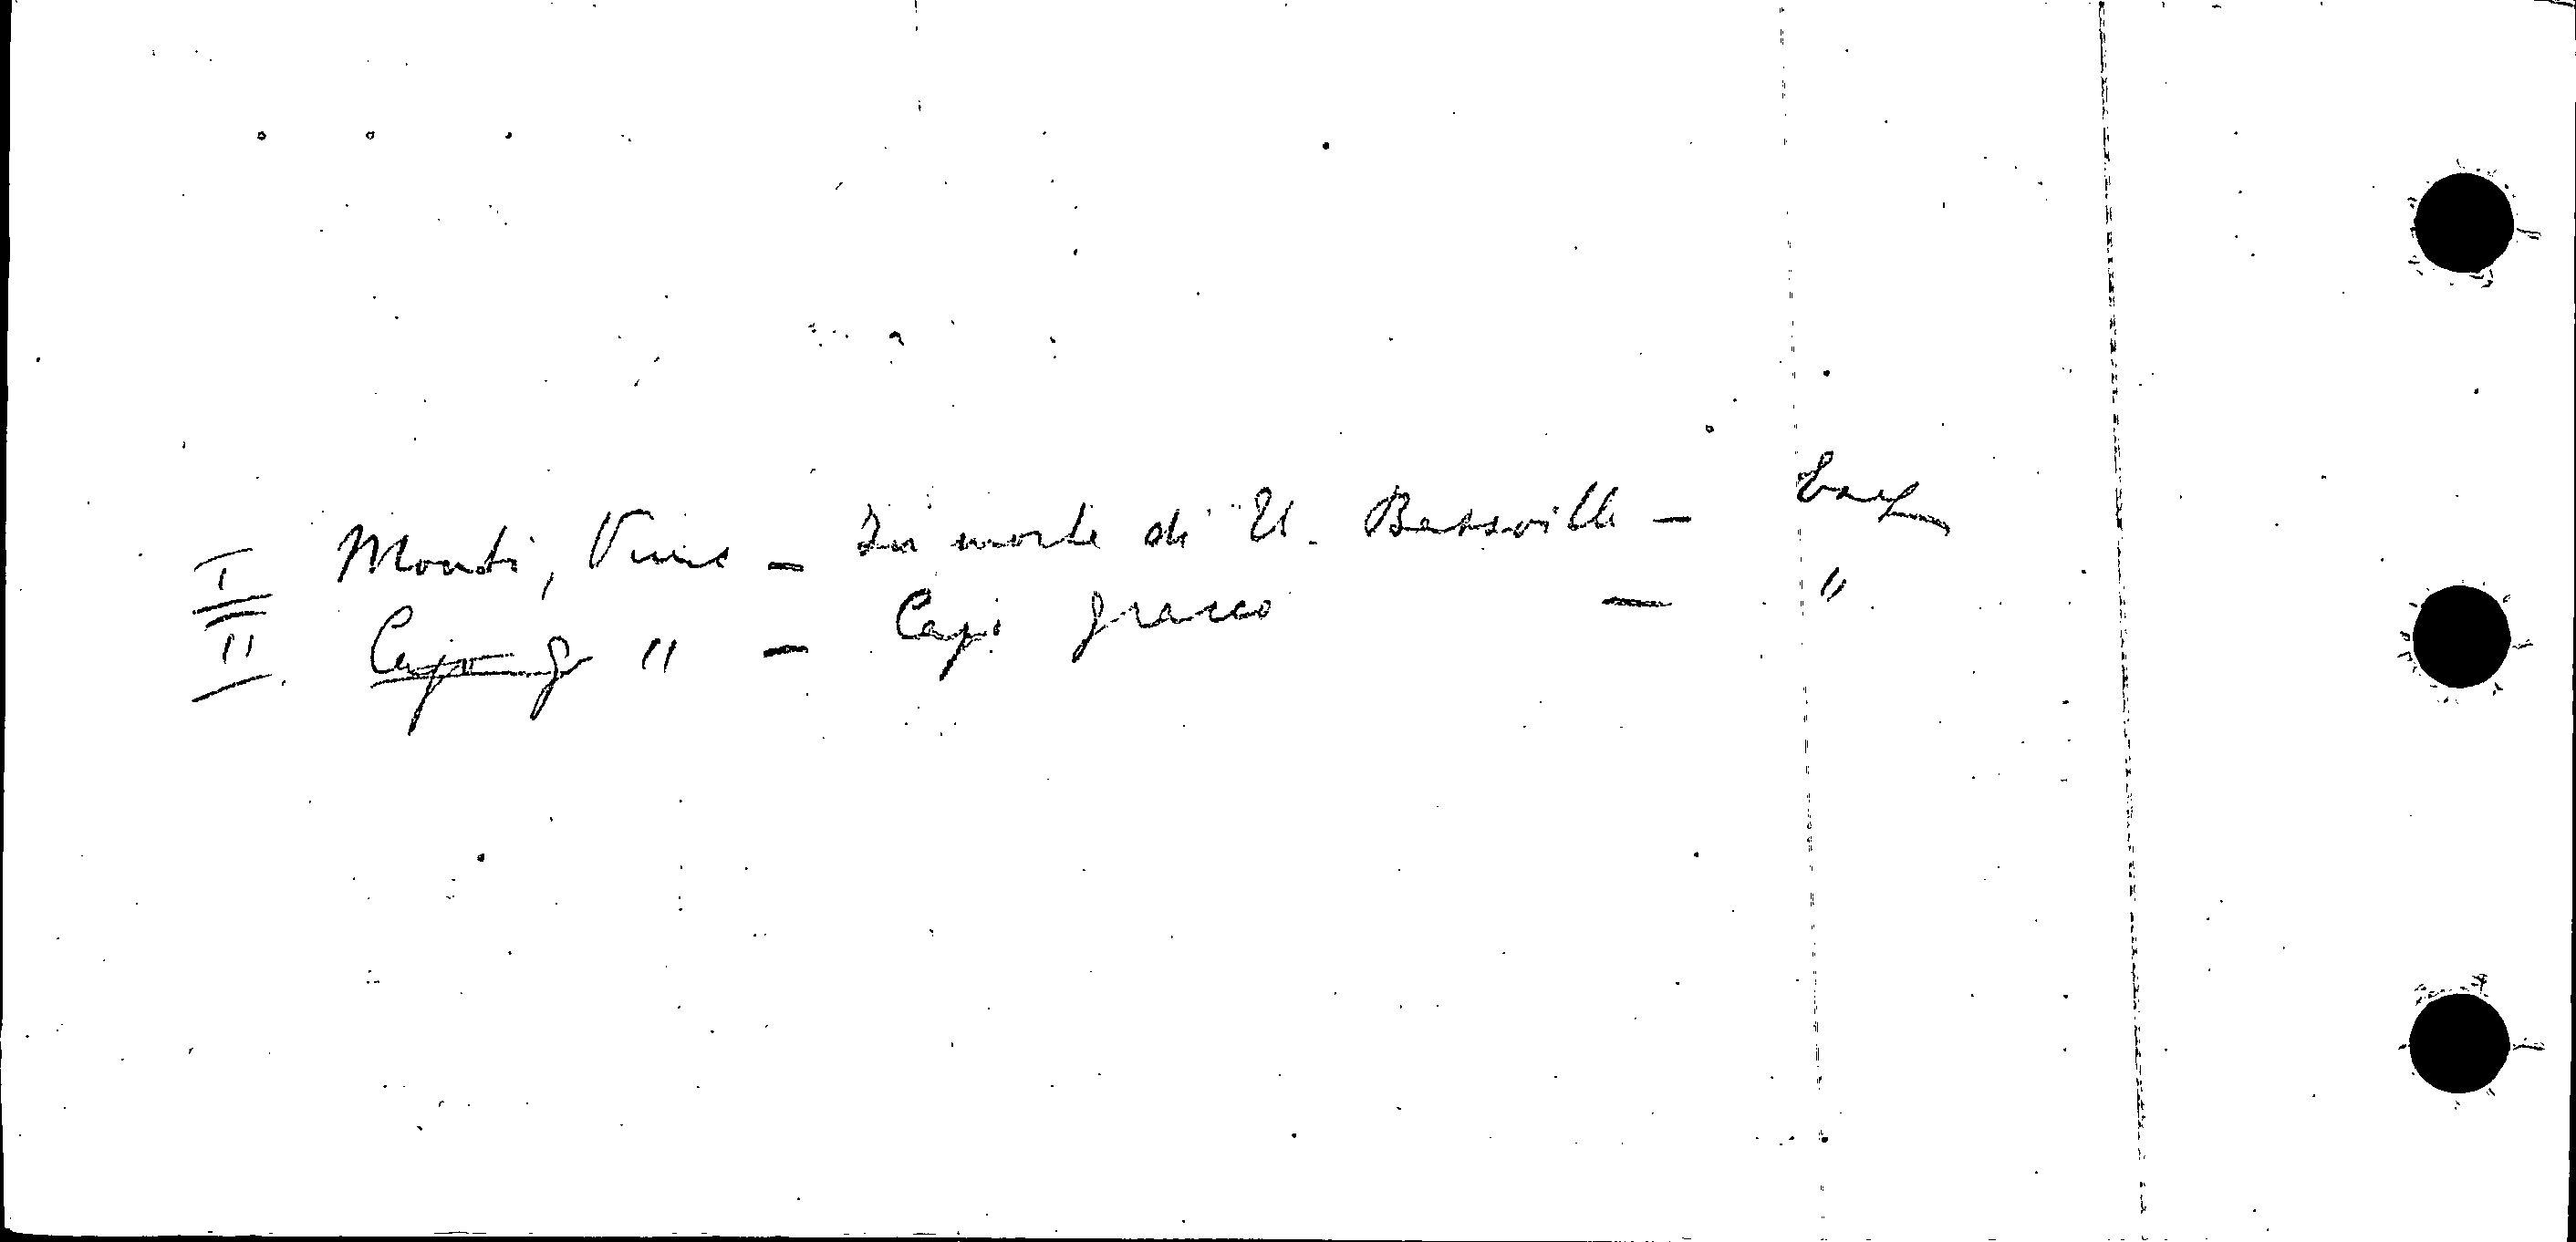 I Monti, Vinc – In morte di U. Bassville –
II. Cajo G " – Cajo Gracco – "